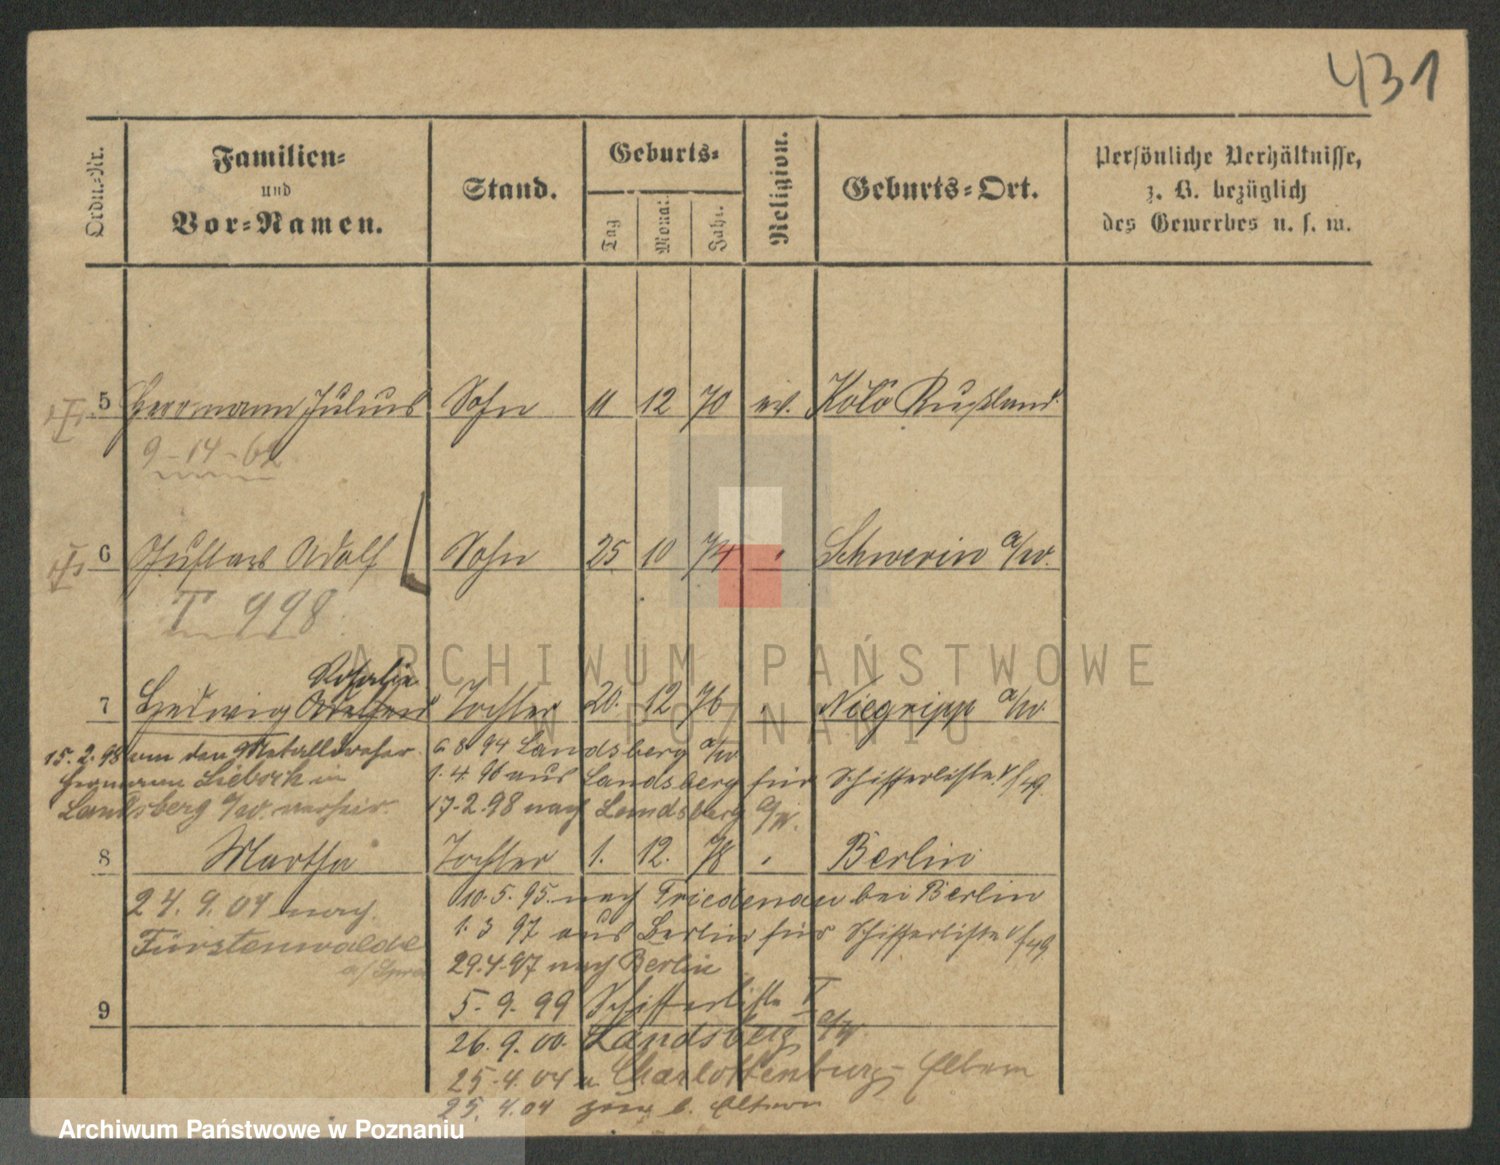 431
Ordn.-Nr.
Familien-
und
Vor-Namen.
Stand.
Geburts-
Tag
Monat.
Jahr.
Religion.
Geburts-Ort.
Persönliche Verhältnisse,
z. B. bezüglich
des Gewerbes u. s. w.
5 Herrmann Julius Sohn 11 12 70 ev. Kolo Rußland
9-14-62
6 Gustav Adolf Sohn 25 10 74 " Schwerin a/W.
T 998
Rosalie
7 Hedwig Tochter 20. 12 76 " Niegripp
15.2.98 von den Metalldreher 6 8 94 Landsberg a/W
Hermann in 1.4.96 aus Landsberg für Schifferliste
Landsberg a/W. verheir. 17.2.98 nach Landsberg a/W.
8 Martha Tochter 1. 12. 78 " Berlin
24.9.04 nach 10.5.95. nach Friedenau bei Berlin
Fürstenwalde 1.3 97 aus Berlin für Schifferliste
a/Spree 29.4.97 nach Berlin
9 5.9.99 Schifferliste
26.9.00. Landsberg a/W.
25.4.04 Charlottenburg Eltern
25.4.04 Eltern
ARCHIWUM PAŃSTWOWE
W POZNANIU
Archiwum Państwowe w Poznaniu